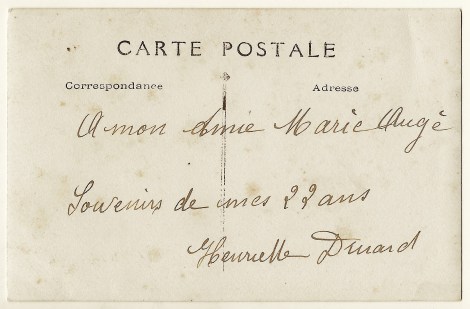 CARTE POSTALE
Correspondance Adresse
A mon amie Marie Augé
Souvenirs de mes 22 ans
Henriette Druard